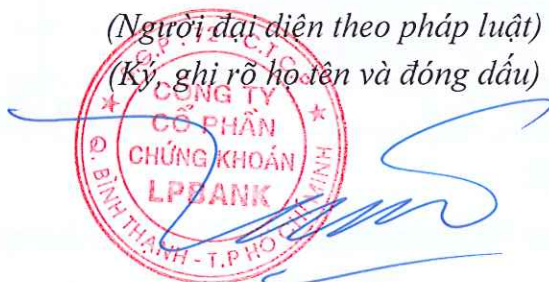 (Người đại diện theo pháp luật)
(Ký, ghi rõ họ tên và đóng dấu)
CÔNG TY
CỔ PHẦN
CHỨNG KHOÁN
LPBANK
Q. BÌNH THẠNH - T.P HỒ CHÍ MINH